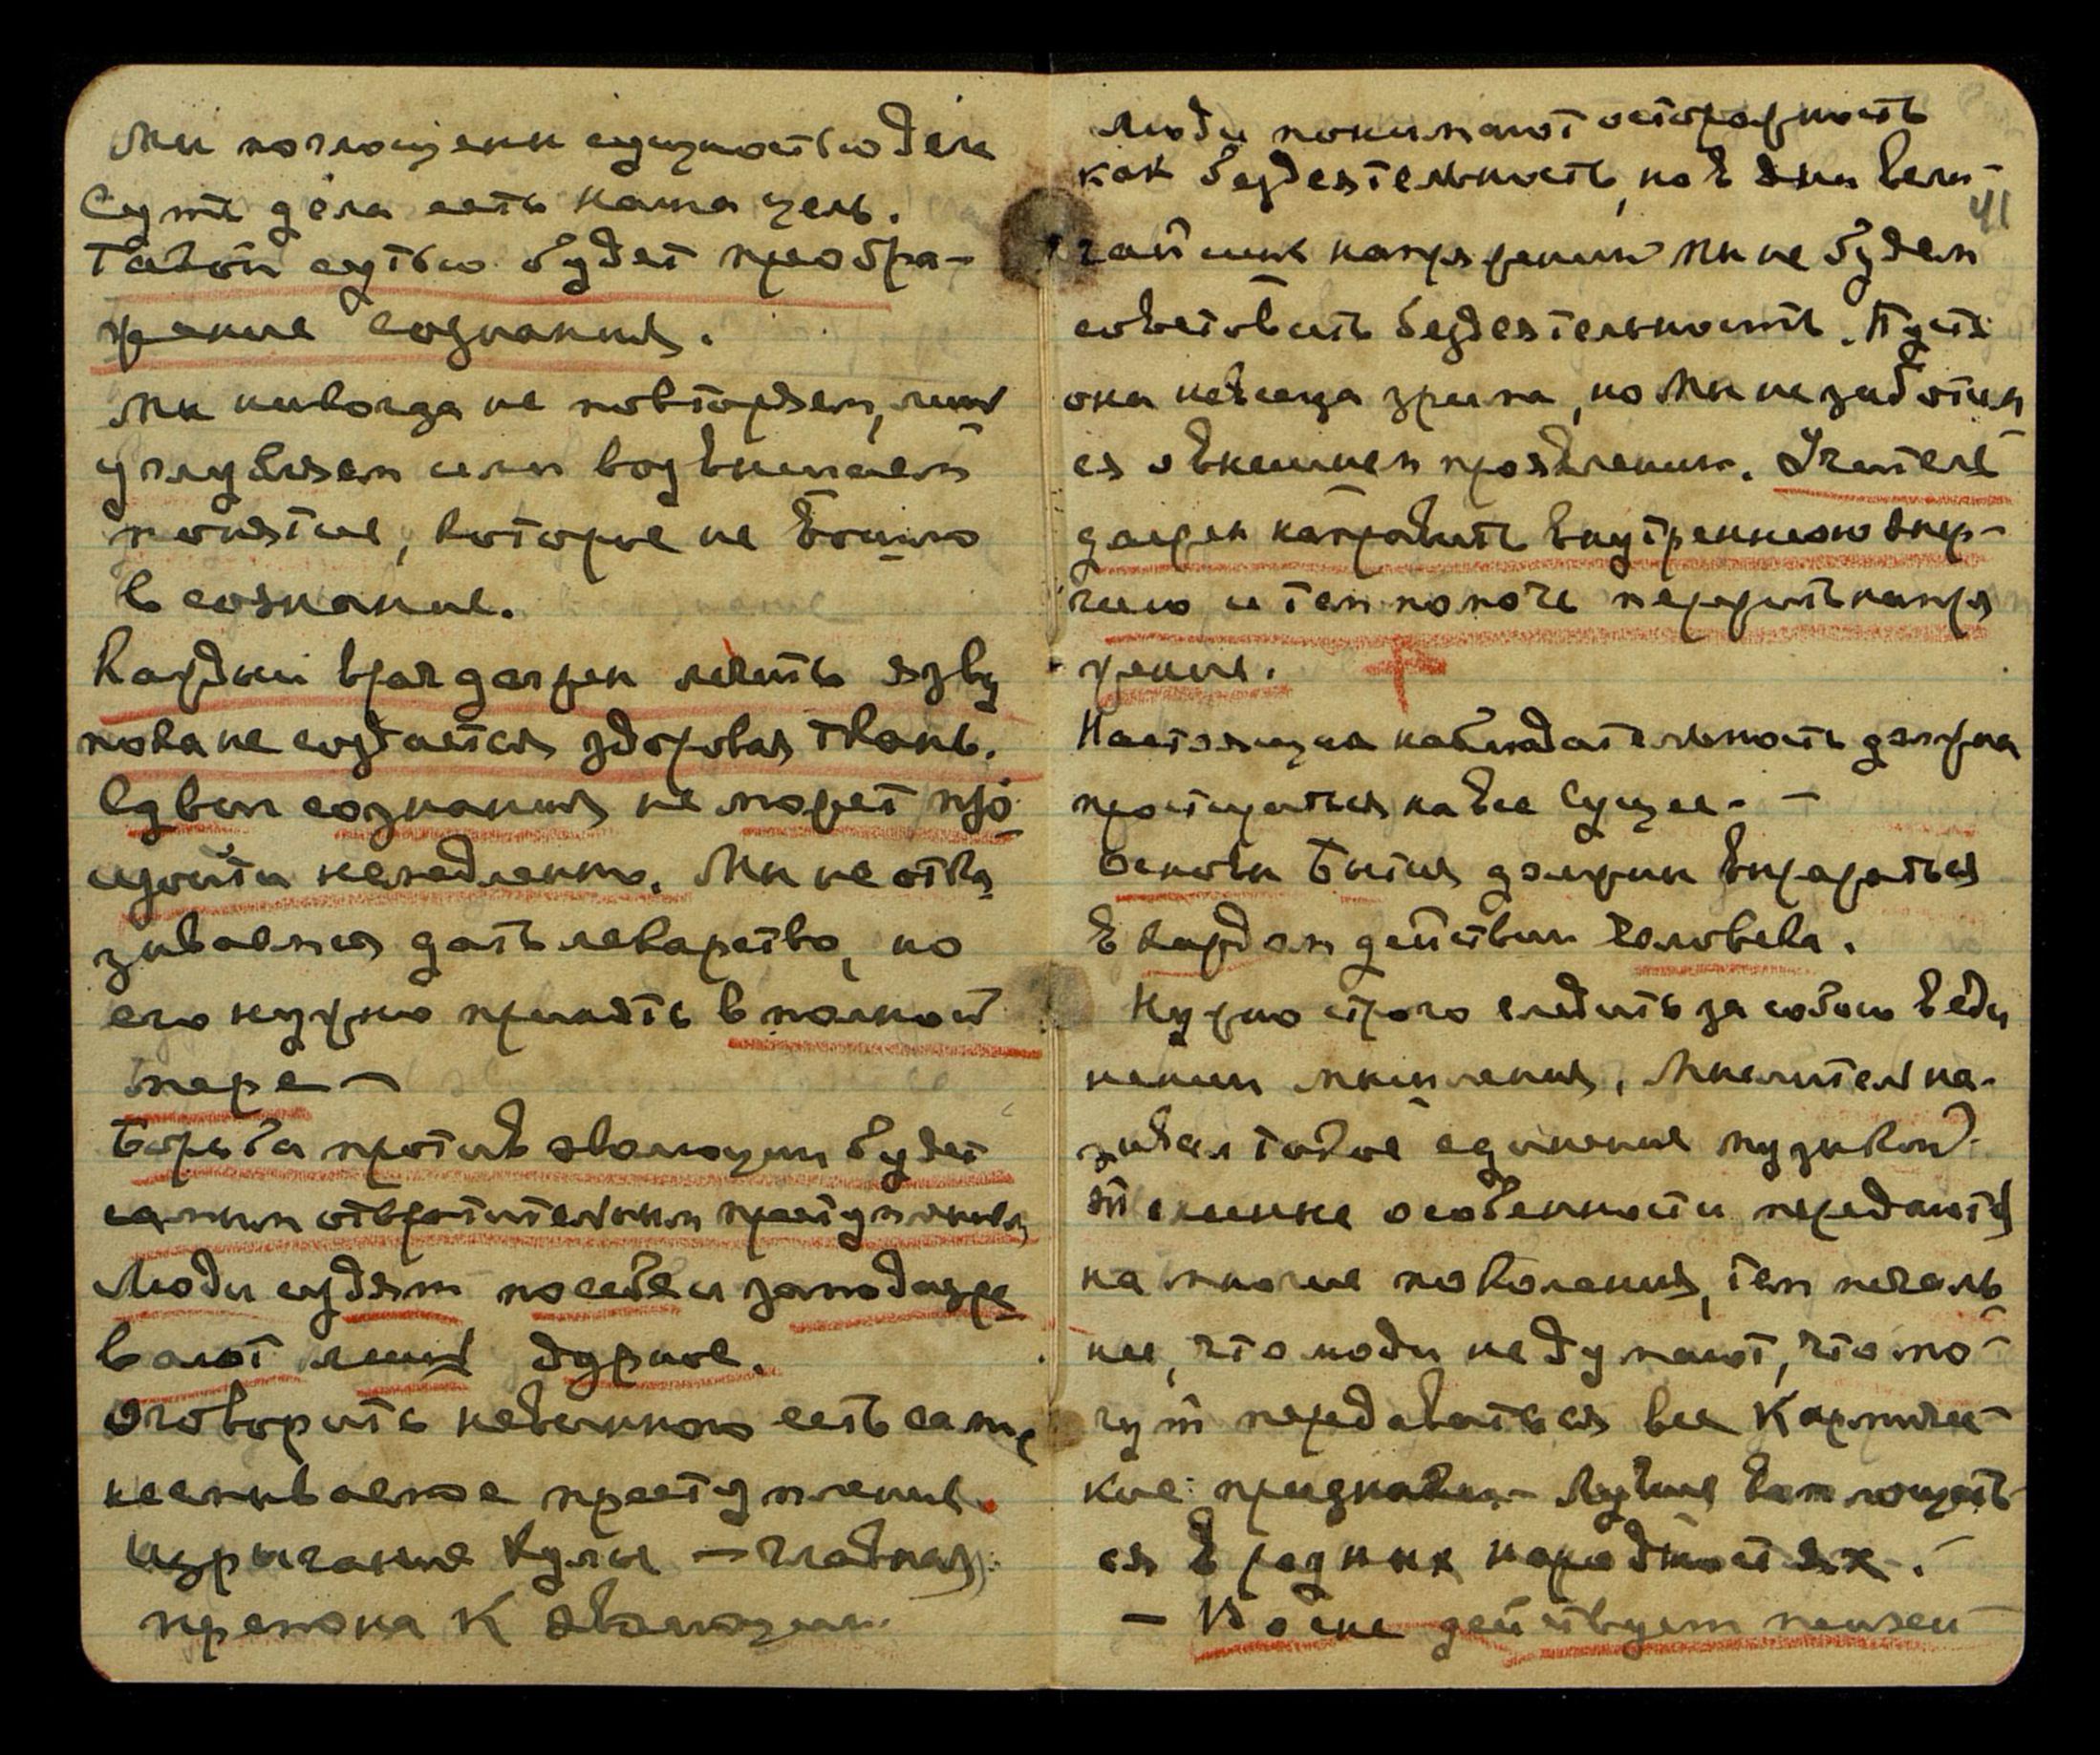 Мы поглощены сущностью дела
Суть дела есть наша цель.
Такой сутью будет преобра-
жение сознания.
Мы никогда не повторяем, лишь
углубляем или возвышаем
понятие, которое не вошло
в сознание.
Каждый врач должен лечить язву
пока не создастся здоровая ткань.
Сдвиг сознания не может про-
изойти немедленно. Мы не отка
зываемся дать лекарство, но
его нужно принять в полной
мере —
Борьба против эволюции будет
самым отвратительным преступлением
Люди судят по себе и заподазре
вают лишь дурное.
Оговорить невинного есть самое
несмываемое преступление.
Изрыгание хулы — главная
препона к эволюции.
Люди понимают осторожность
как бездеятельность, но в дни вели-
41
чайших напряжений Мы не будем
советовать бездеятельность. Пусть
она не всегда зрима, но Мы не заботим
ся о внешнем проявлении. Учитель
должен направить внутреннюю энер-
гию и тем помочь пережить напря
жение.
Настоящая наблюдательность должна
простираться на все Сущее. —
Основы Бытия должны выражаться
в каждом действии человека.
Нужно строго следить за собою в еди
нении мышления. Мыслитель на-
зывал такое единение музыкой.
Телесные особенности передаются
на многие поколения, тем печаль-
нее, что люди не думают, что мо-
гут передаваться все Кармичес-
кие признаки. Лучше воплощать-
ся в разных народностях.
— Вовне действует